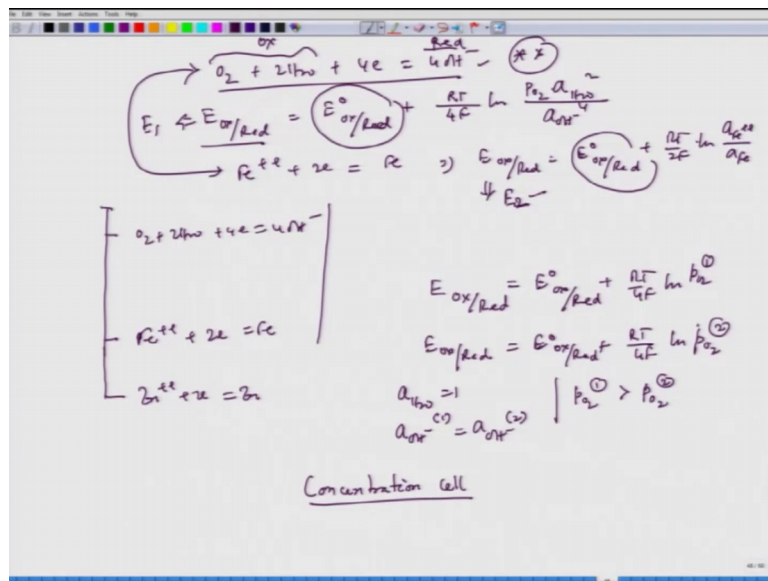 Edit View Insert Actions Tools Help
ox Red
O₂ + 2H₂O + 4e = 4OH⁻ — (**)
E₁ ⇐ E ox/Red = E° ox/Red + RT/4F ln (P_O₂ a_H₂O²)/(a_OH⁻⁴)
Fe⁺⁺ + 2e = Fe ⇒ E ox/Red = E° ox/Red + RT/2F ln a_Fe⁺⁺/a_Fe
⇓ E₂ —
O₂ + 2H₂O + 4e = 4OH⁻
E ox/Red = E° ox/Red + RT/4F ln p_O₂ ①
Fe⁺⁺ + 2e = Fe
E ox/Red = E° ox/Red + RT/4F ln p_O₂ ②
Zn⁺⁺ + 2e = Zn
a_H₂O = 1 | p_O₂ ① > p_O₂ ②
a_OH⁻ (1) = a_OH⁻ (2)
Concentration cell